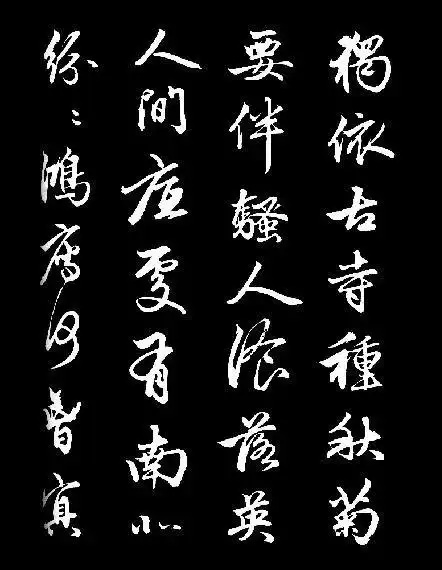 獨依古寺種秋菊
要伴騷人湌落英
人間底處有南北
紛〻鴻雁何曾冥